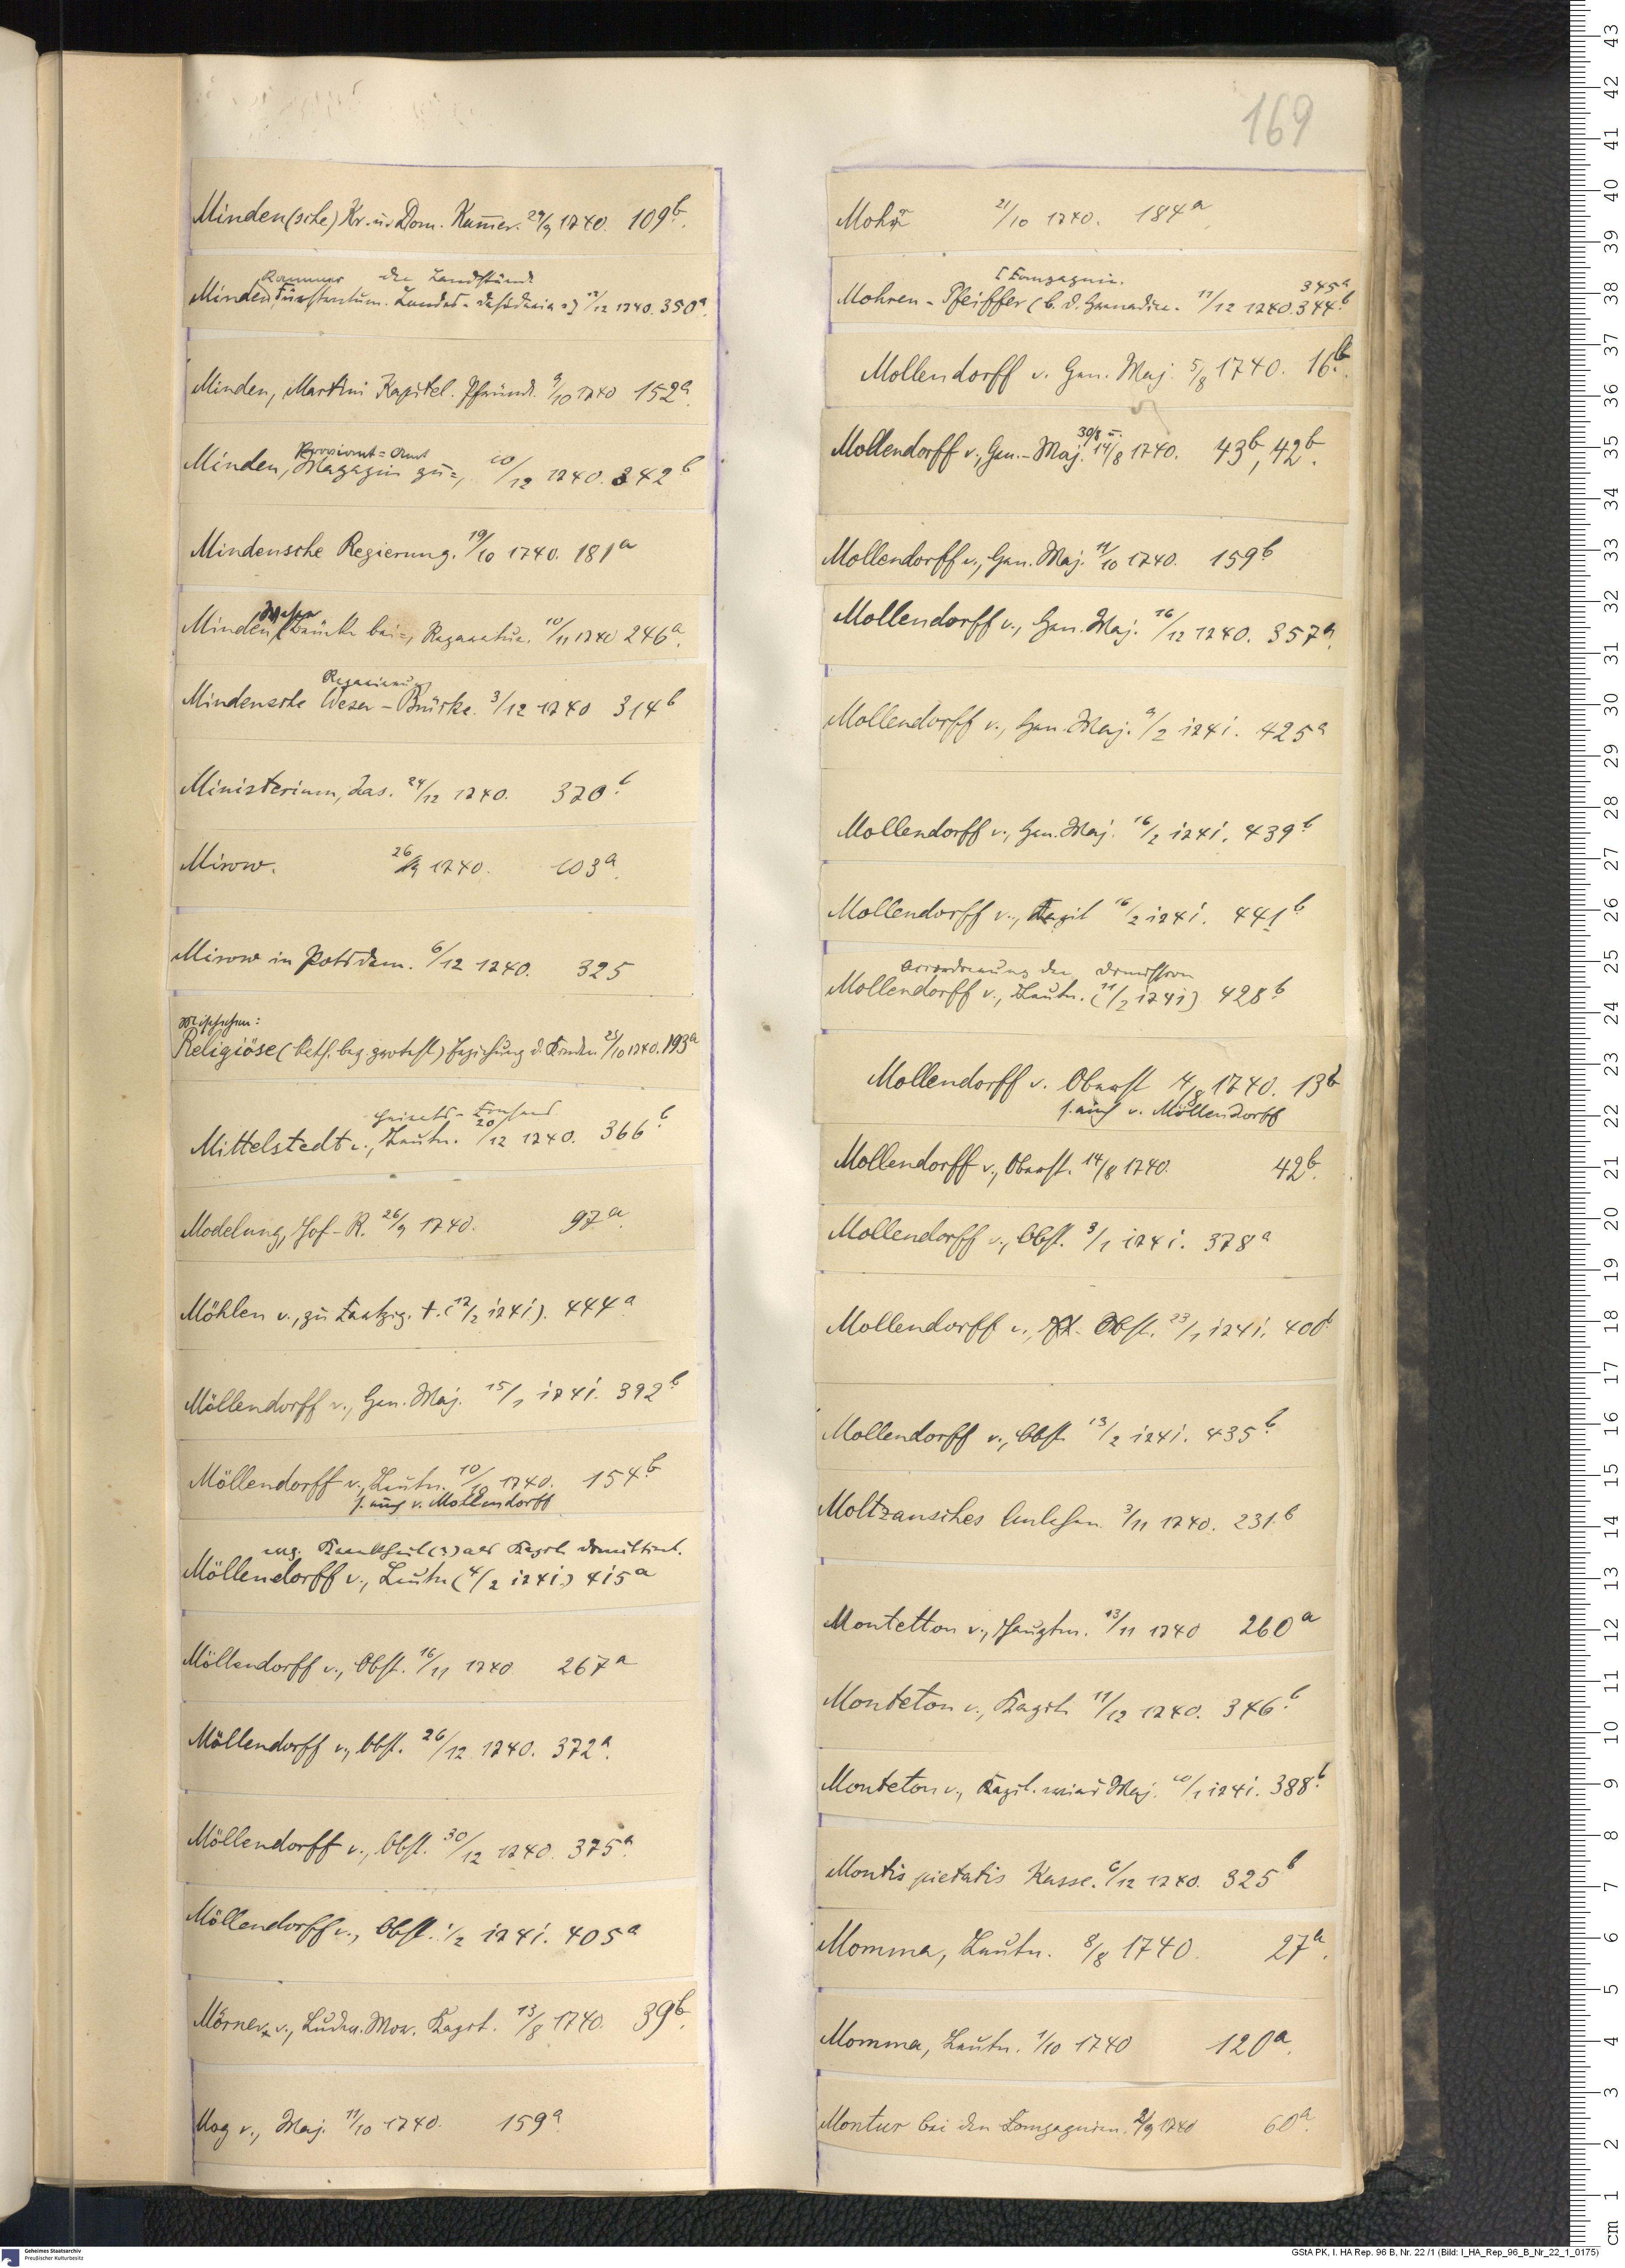 169
Minden(sche) Kr. u. Dom. Kammer. 29/9 1740. 109b.
Kammer der Landstände
Minden Fürstentum. Landes-Desideria 17/12 1740. 350a.
Minden, Martini Kapitel. Pfründe. 9/10 1740 152a.
Proviant-Amt
Minden, Magazin zu-, 10/12 1740. 342b
Mindensche Regierung. 19/10 1740. 181a
Weser
Minden, Brücke bei-, Reparatur. 10/11 1740 246a.
Reparierung
Mindensche Weser-Brücke. 3/12 1740 314b
Ministerium, das. 24/12 1740. 370b
Mirow. 26/9 1740. 103a.
Mirow in Potsdam. 6/12 1740. 325
Mischehen:
Religiöse (kath. bez. protest.) Erziehung d. Kinder 25/10 1740. 193a
Heirats-Consens
Mittelstedt v., Leutn. 20/12 1740. 366b
Modelung, Hof-R. 26/9 1740. 97a.
Möhlen v., zu †. (17/2 1741). 444a
Möllendorff v., Gen. Maj. 15/1 1741. 392b
Möllendorff v., Leutn. 10/10 1740. 154b
s. auch v. Mollendorff
weg. Krankheit (?) als Kapt. dimittiert.
Möllendorff v., Leutn. (4/2 1741.) 415a
Möllendorff v., Obst. 16/11 1740. 267a
Möllendorff v., Obst. 26/12 1740. 372a.
Möllendorff v., Obst. 30/12 1740. 375a.
Möllendorff v., Obst. 1/2 1741. 405a
Mörner v., Ludw. Mor. Kapt. 13/8 1740. 39b.
Mog v., Maj. 11/10 1740. 159a
Mohr 21/10 1740. 184a
[Compagnie. 345a
Mohren-Pfeiffer (b. d. Grenadier- 11/12 1740. 344b
Mollendorff v. Gen. Maj. 5/8 1740. 16b.
30/8 u.
Mollendorff v., Gen.-Maj. 14/8 1740. 43b, 42b.
Mollendorff v., Gen. Maj. 11/10 1740. 159b
Mollendorff v., Gen. Maj. 16/12 1740. 357a.
Mollendorff v., Gen. Maj. 9/2 1741. 425a
Mollendorff v., Gen. Maj. 16/2 1741. 439b
Mollendorff v., Kapit 16/2 1741. 441b
der Dimission
Mollendorff v., Leutn. (11/2 1741) 428b
Mollendorff v. Oberst 4/8 1740. 13b
s. auch v. Möllendorff
Mollendorff v., Oberst. 14/8 1740. 42b.
Mollendorff v., Obst. 3/1 1741. 378a
Mollendorff v., Obst. 23/1 1741. 400b
Mollendorff v., Obst. 13/2 1741. 435b
Moltzansches Anlehen. 3/11 1740. 231b
Montetton v., Hauptm. 13/11 1740 260a
Monteton v., Kapt. 11/12 1740. 346b
Monteton v., Kapit. wird Maj. 10/1 1741. 388b
Montis pietatis Kasse. 6/12 1740. 325b
Momma, Leutn. 8/8 1740. 27a.
Momma, Leutn. 1/10 1740 120a.
Montur bei den Compagnien. 2/9 1740 60a.
Geheimes Staatsarchiv
Preußischer Kulturbesitz
GStA PK, I. HA Rep. 96 B, Nr. 22 /1 (Bild: I_HA_Rep_96_B_Nr_22_1_0175)